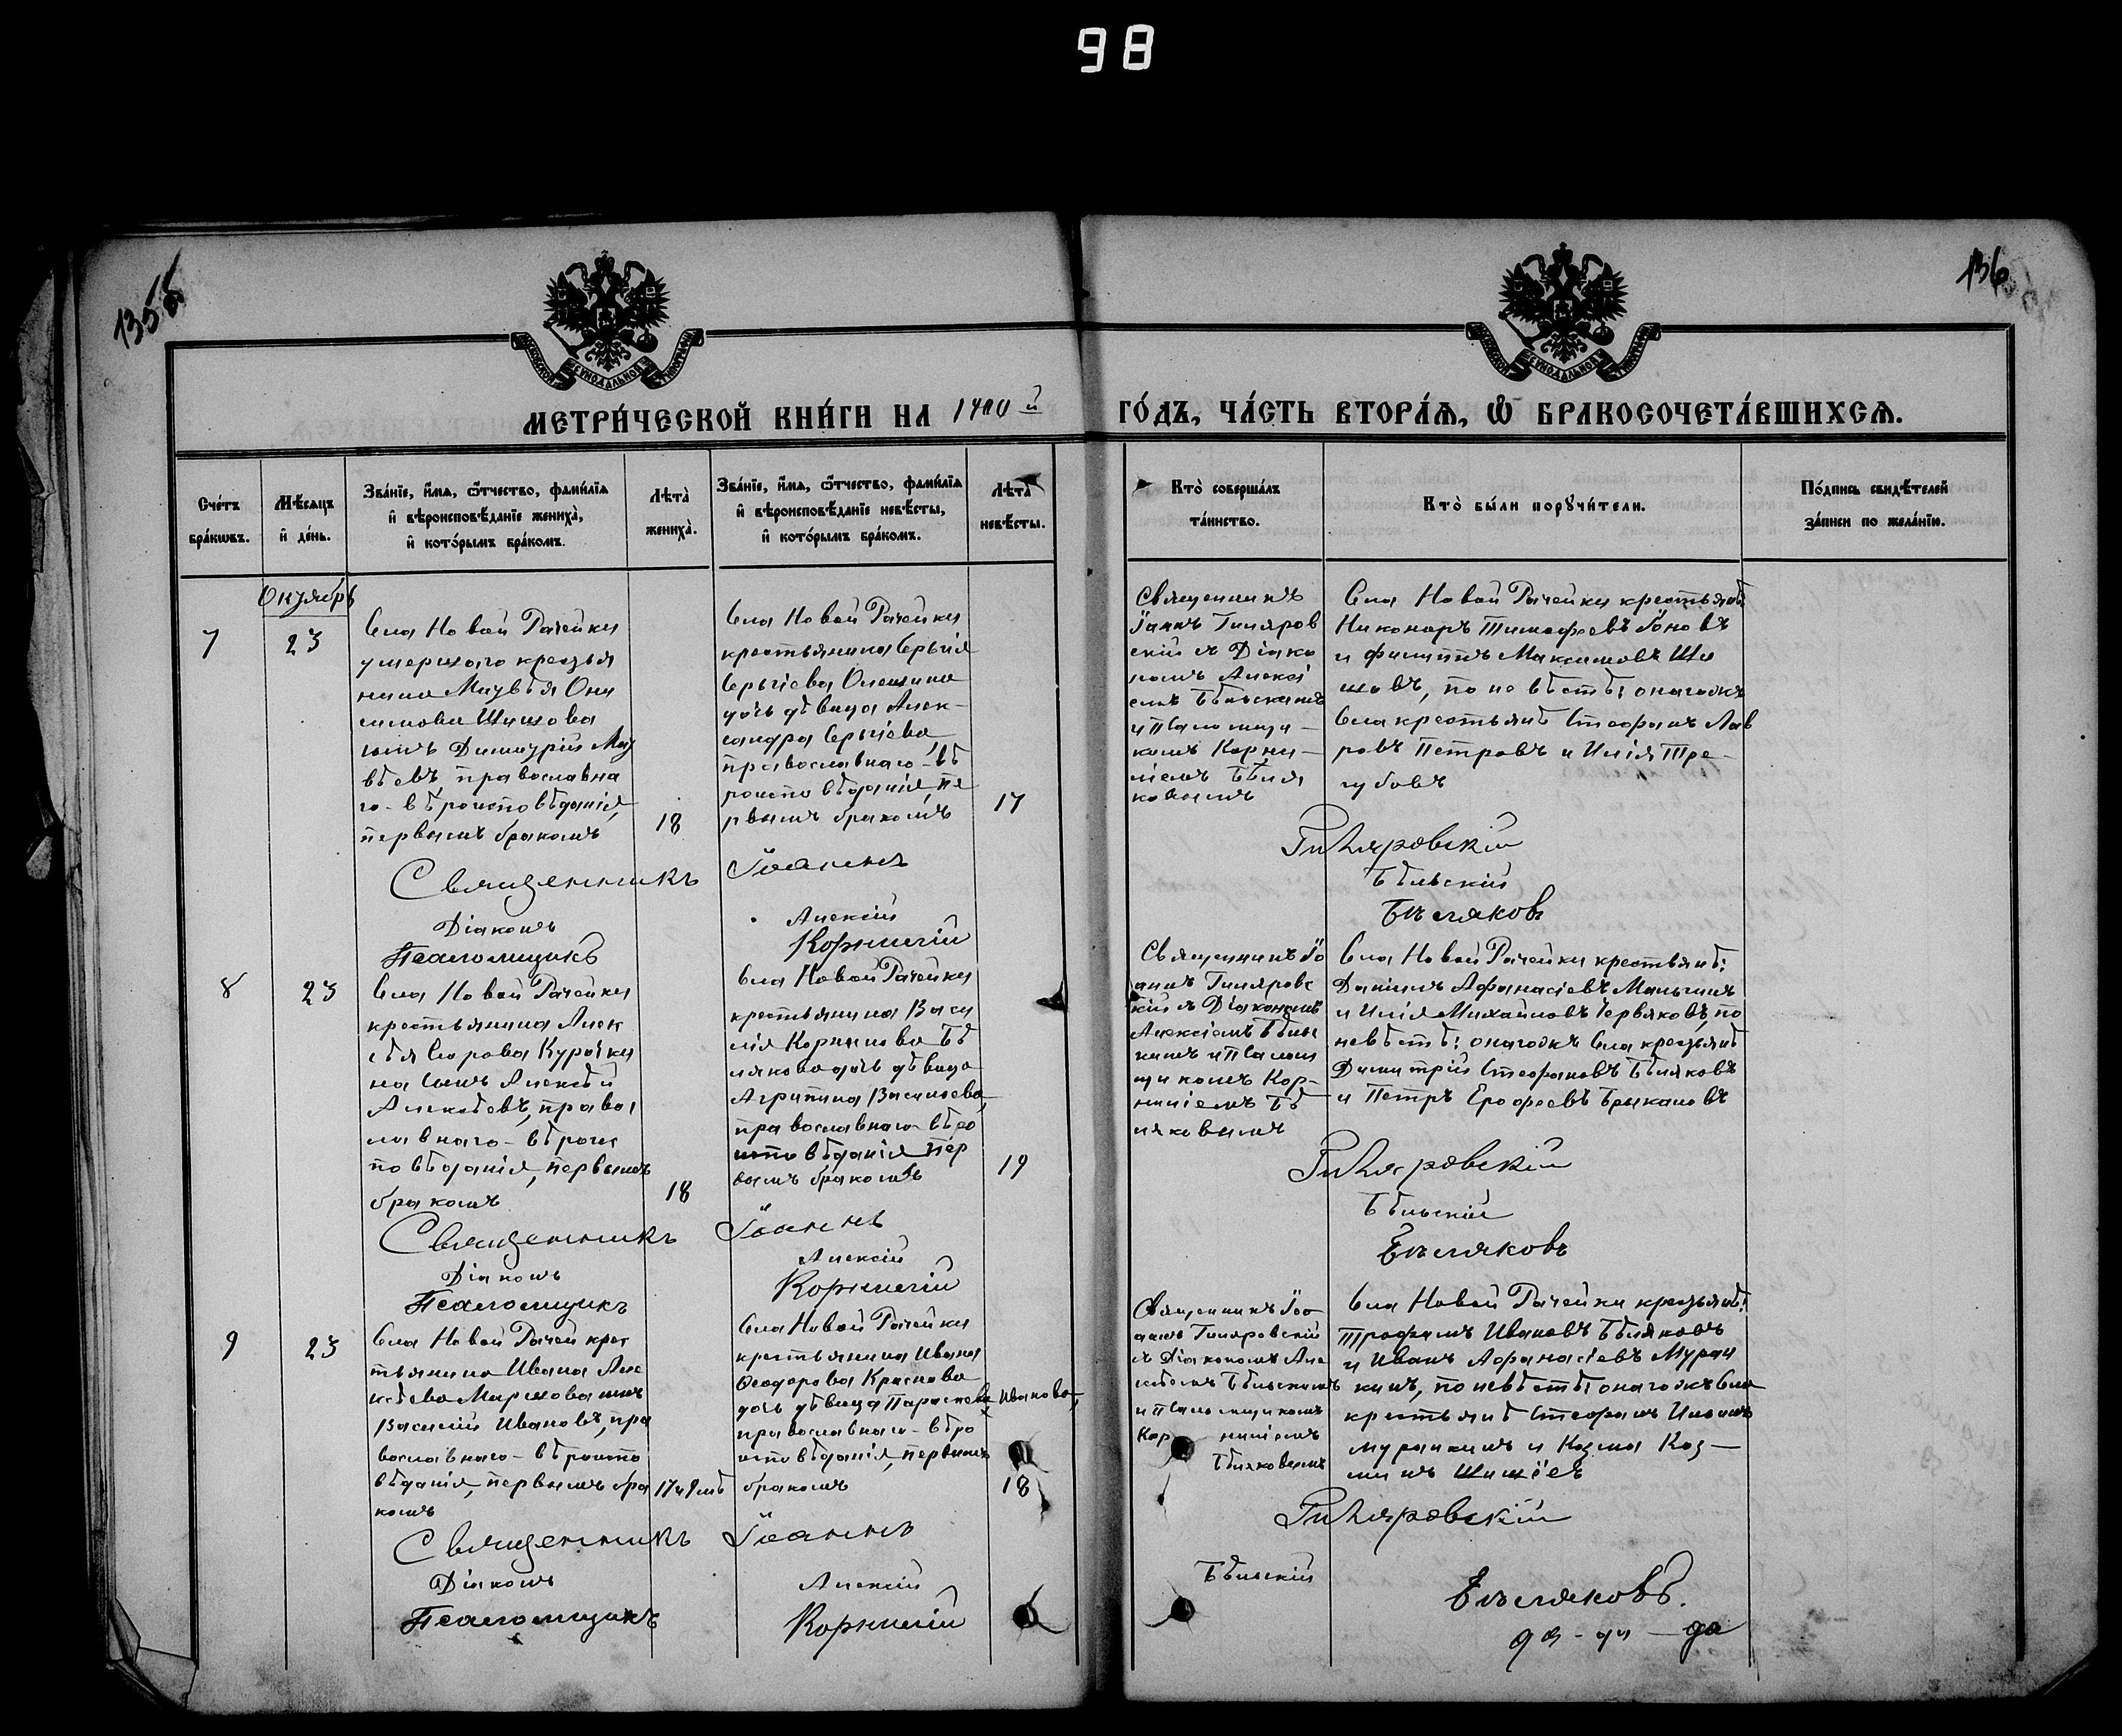 98
136
МЕТРИ́ЧЕСКОЙ КНИ́ГИ НА
ГО́ДЪ, ЧА́СТЬ ВТОРА́Ѧ, Ѿ БРАКОСОЧЕТА́ВШИХСѦ.
Сче́тъ бра́кѡвъ.
Мѣ́сяцъ и҆ де́нь.
Зва́нїе, и҆́мѧ, ѻ҆́тчество, фами́лїѧ
и҆ вѣроисповѣ́данїе жениха̀,
и҆ кото́рымъ бра́комъ.
Лѣта̀
жениха̀.
Зва́нїе, и҆́мѧ, ѻ҆́тчество, фами́лїѧ
и҆ вѣроисповѣ́данїе невѣ́сты,
и҆ кото́рымъ бра́комъ.
Лѣта̀
невѣ́сты.
Кто̀ соверша́лъ
та́инство.
Кто̀ бы́ли порꙋчи́тели.
По́дпись свидѣ́телей
за́писи по жела́нїю.
Октябрь
7
23
Села Новой Рачейки
умершаго крестья
нина Матвѣя Они
симова Шишова
сынъ Димитрій Мат
вѣевъ, православна
го вѣроисповѣданія,
первымъ бракомъ
18
Села Новой Рачейки
крестьянина Сергія
Сергіева Олешина
дочь дѣвица Алек-
сандра Сергіева,
православнаго вѣ
роисповѣданія, пе
рвымъ бракомъ
17
Священникъ
Іоаннъ Гиляров
скій съ Діако
номъ Алексі
емъ Бѣльскимъ
и Псаломщи-
комъ Корни-
ліемъ Бѣля
ковымъ
Села Новой Рачейки крестьянѣ
Никаноръ Тимофеевъ
и Филиппъ Максимовъ Ши
шовъ, по невѣстѣ: онагожъ
Села крестьянѣ Стефанъ Лав
ровъ Петровъ и Илія Тре-
губовъ
Священникъ Іоаннъ Гиляровскій
Діаконъ Алексій Бѣльскій
Псаломщикъ Корнилій Бѣляковъ
8
23
Села Новой Рачейки
крестьянина Алек
сѣя Егорова Курочки
на сынъ Алексѣй
Алексѣевъ, правос
лавнаго вѣроис
повѣданія, первымъ
бракомъ
18
Села Новой Рачейки
крестьянина Васи
лія Корнилова Бѣ
лякова дочь дѣвица
Агрипина Васильева,
православнаго вѣро
исповѣданія, пер
вымъ бракомъ
19
Священникъ Іо
аннъ Гиляровс
кій съ Діакономъ
Алексіемъ Бѣльс
кимъ и Псалом
щикомъ Кор-
ниліемъ Бѣ
ляковымъ
Села Новой Рачейки крестьянѣ:
Даніилъ Афанасіевъ Маньчинъ
и Илія Михайловъ Червяковъ, по
невѣстѣ: онагожъ Села крестьянѣ
Димитрій Стефановъ Бѣляковъ
и Петръ Ерофеевъ Брыкановъ
Священникъ Іоаннъ Гиляровскій
Діаконъ Алексій Бѣльскій
Псаломщикъ Корнилій Бѣляковъ
9
23
Села Новой Рачей крес
тьянина Ивана Але
ксѣева Миршова сынъ
Василій Ивановъ, пра
вославнаго вѣроиспо
вѣданія, первымъ бра
комъ
Села Новой Рачейки
крестьянина Ивана
Ѳеодорова Краснова
дочь дѣвица Параскева Иванова,
православнаго вѣро
исповѣданія, первымъ
бракомъ
18
Священникъ Іоо
аннъ Гиляровскій
съ Діакономъ Але
ксѣемъ Бѣльскимъ
и Псаломщикомъ
Кор ниліемъ
Бѣляковымъ
Села Новой Рачейки крестьянѣ:
Трофимъ Ивановъ Бѣляковъ
и Иванъ Афанасіевъ Мурач
кинъ, по невѣстѣ онагожъ Села
крестьянѣ Стефанъ
Мурачкинъ и Козма Коз-
минъ
Священникъ Іоаннъ Гиляровскій
Діаконъ Алексій Бѣльскій
Псаломщикъ Корнилій Бѣляковъ.